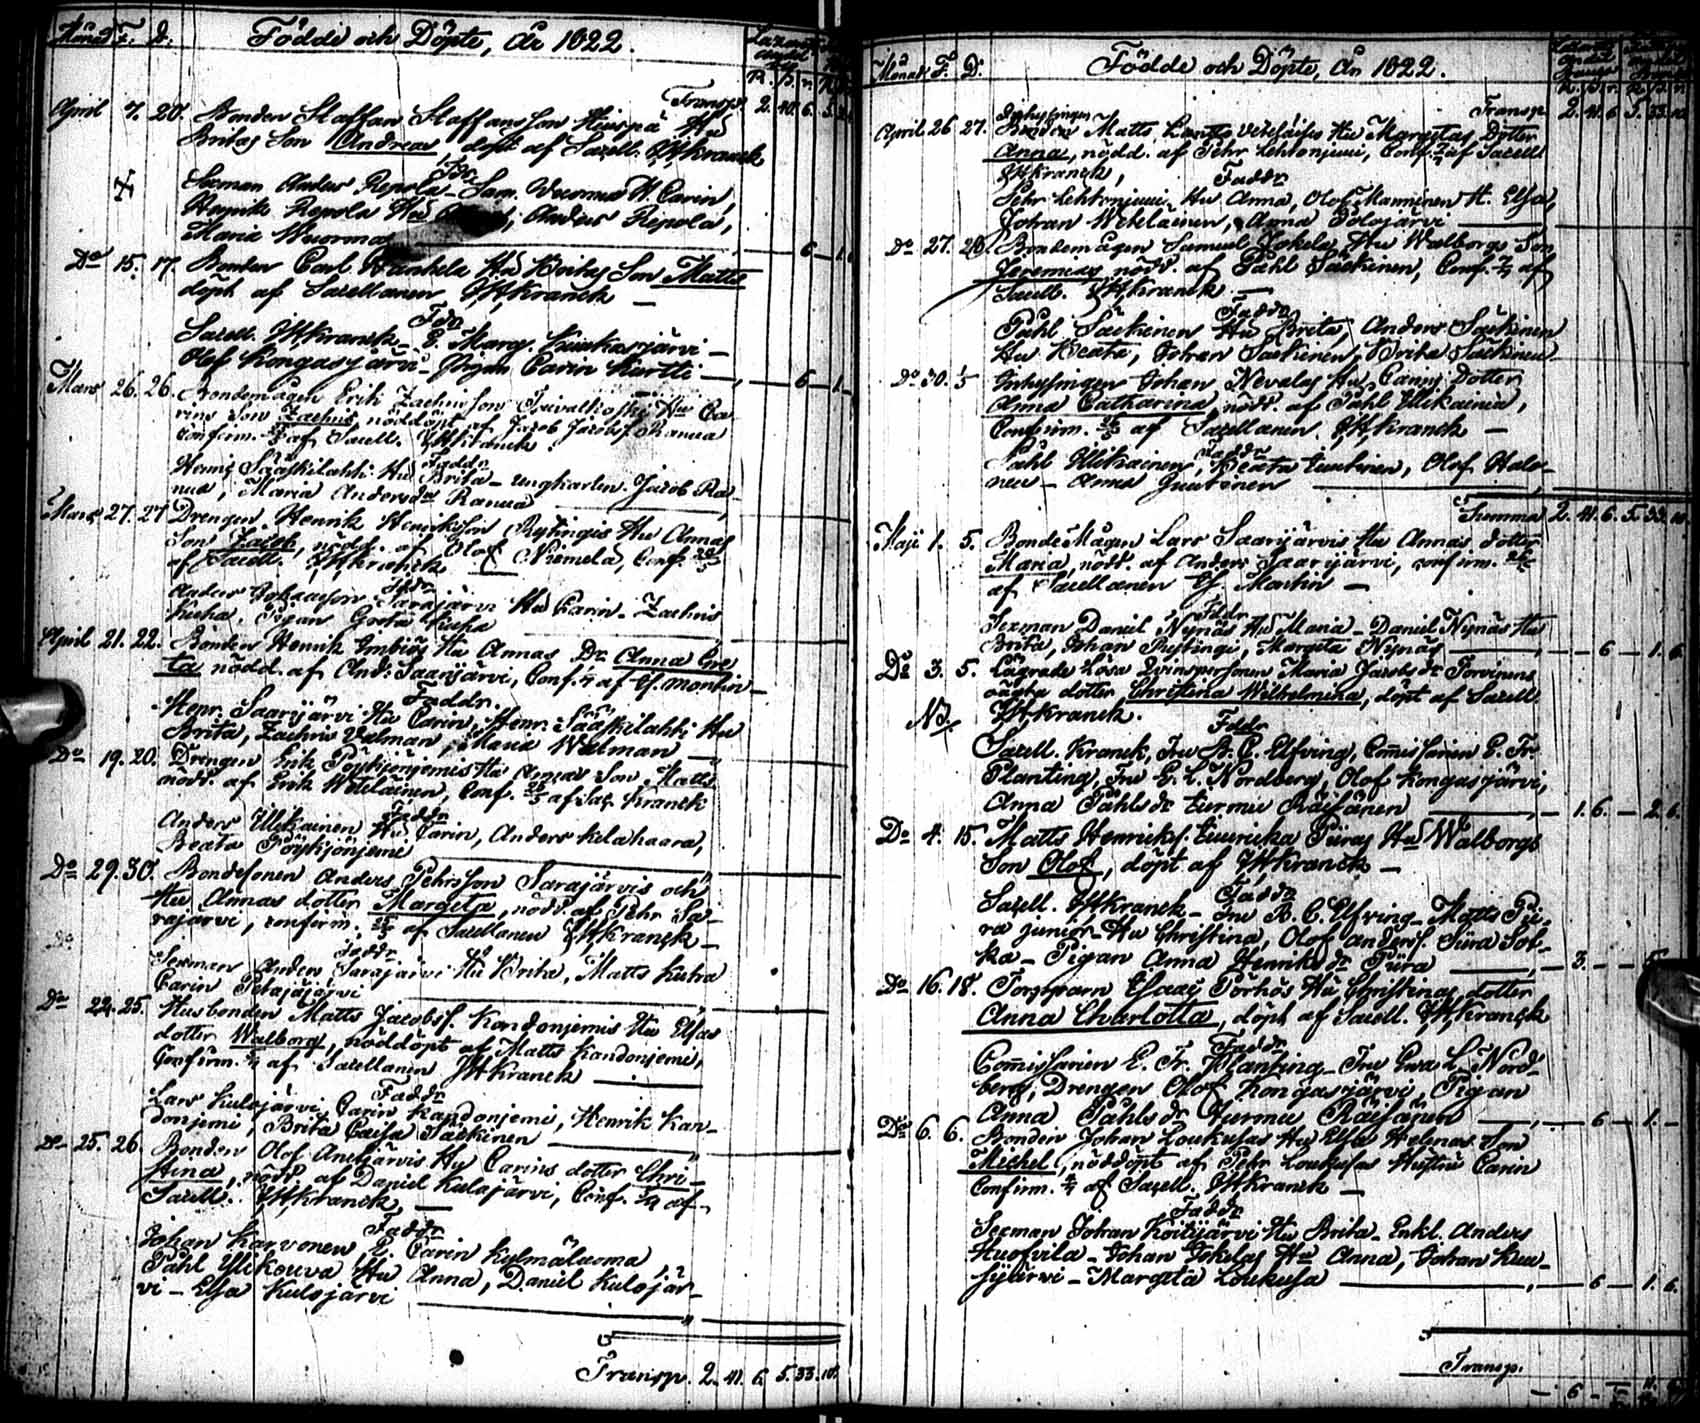 Månad F. D. Födde och Döpte, År 1822.
Transp. 2. 40. 6. 5.
April 7. 20. Bonden Staffan Staffansson Hu
Britas Son Andreas döpt af Sacell. JWKranck
Fdr.
Sexman Anders Repola H. Carin,
Henrik Repola Hu Anders Repola,
Maria Wuorma 6 1.
Do 15. 17. Bonden Carl Hu Britas Son Matts
döpt af Sacellanen JWKranck
Fdr
Sacell. JWKranck E. Marg. Kuukasjärvi
Olof Kongasjärvi Pigan Carin Kurtti 6 1.
Mars 26. 26. Bondemågen Erik Zachrisson Hu Ca-
rins Son Zachris nöddöpt af Jacob Jacobss. Ranua
Confirm. af Sacell. JWKranck
Faddr
Henric Sääskilahti Hu Brita ungkarlen Jacob Ra-
nua, Maria Andersdr Ranua
Mars 27. 27 Drengen Henrik Henriksson Rytingis Hu Annas
Son Jacob, nödd. af Olof Niemelä, Conf.
af Sacell. JWKranck
Fddr
Anders Johansson Sarajärvi Hu Carin Zachris
Kuha, Pigan Greta Kuha
April 21. 22. Bonden Henrik Imbiös Hu Annas Dr Anna Gre
ta nödd. af And: Saarijärvi, Conf. af Es. Montin
Faddr.
Henr. Saarijärvi Hu Carin, Henr. Sääskilahti Hu
Brita, Zachris Welman, Maria Welman
Do 19. 20. Drengen Erik Pöykiönjemis Hu Annas Son Matts
nödd. af Erik Wetelainen, Conf. 26/5 af Sac. Kranck
Faddr
Anders Ylikainen Hu Carin, Anders Kelahaara,
Beata Pöykjönjeme
Do 29. 30. Bondesonen Anders Pehrsson Sarajärvis och
Hu Annas dotter Margeta, nödd. af Pehr Sa-
rajärvi, confirm. af Sacellanen JWKranck
Faddr
Sexman Anders Sarajärvi Hu Brita, Matts Kuha
Carin Petäjäjärvi
Do 22. 25. Husbonden Matts Jacobss. Kandonjemis Hu Elsas
dotter Walborg, nöddöpt af Matts Kandonjeme,
Confirm. af Sacellanen JWKranck
Faddr
Lars Kulojärvi Carin Kandonjemi, Henrik Kan-
donjemi, Brita Caisa Säckinen
Do 25. 26. Bonden Olof Anetjärvis Hu Carins dotter Chri-
stina, nödd. af Daniel Kulojärvi, Conf. af
Sacell. JWKranck
Faddr
Johan Karvonen, E. Carin Kylmäluoma
Pahl Ylikouva Hu Anna, Daniel Kulojär-
vi Elsa Kulojärvi
Transp. 2. 41. 6. 5. 33. 10.
Månad F. D. Födde och Döpte, År 1822.
Transp. 2. 41. 6 5. 33. 10.
April 26 27. Inhysingen Matts Hu Margetas Dotter
Anna, nödd. af Pehr Lehtonjemi, Conf. af Sacell
JWKranck,
Faddr
Pehr Lehtonjemi Hu Anna, Olof Manninen H. Elsa,
Johan Wetelainen, Anna Polojärvi
Do 27. 28. Bondemågen Samuel Jokela Hu Walborgs Son
Jeremias nödd. af Pahl Säckinen, Conf. af
Sacell. JWKranck
Faddr
Pahl Säckinen Hu Brita, Anders Säckinen
Hu Beata, Johan Säckinen, Brita Säckinen
Do 30. 1/5 Inhysingen Johan Nevalas Hu Carins Dotter
Anna Catharina, nödd. af Pahl Ylikainen,
Confirm. af Sacellanen JWKranck
Faddr
Pahl Ylikainen, Beata Juutinen, Olof Halo-
nen Anna Juutinen
Summa 2. 41. 6. 5. 33. 10.
Maji 1. 5. BondeMågen Lars Saarijärvis Hu Annas dotter
Maria, nödd. af Anders Saarijärvi, confirm.
af Sacellanen Es Montin
Fddr
Sexman Daniel Nynäs Hu Maria Daniel Nynäs Hu
Brita, Johan Rytingi, Margeta Nynäs 6 1. 6.
Do 3. 5. Lägrade Lösa Qvinspersonen Maria Jacobsdr Torvinens
oägta dotter Christina Wilhelmina, döpt af Sacell
NB. JWKranck.
Fddr
Sacell. Kranck, Fru B. C. Elfving, Commissarien E. Fr.
Planting, Fru E. L. Nordberg, Olof Kongasjärvi,
Anna Pahlsdr Räisänen 1. 6. 2. 6.
Do 4. 15. Matts Henrikss. Püras Hu Walborgs
Son Olof, döpt af JWKranck
Faddr
Sacell. JWKranck Fru B. C. Elfving Matts Pü-
ra junior Hu Christina, Olof Anderss. Püra
Pigan Anna Henriksdr Püra 3. 5.
Do 16. 18. Torpparn Esaias Törhös Hu Christinas dotter
Anna Charlotta, döpt af Sacell. JWKranck
Faddr
Commissarien E. Fr. Planting Fru Ewa L. Nord-
berg, Drengen Olof Kongasjärvi Pigan
Anna Pahlsdr Räisänen 6 1.
Do 6. 6. Bonden Johan Loukusas Hu Elsa Helenas Son
Michel, nöddöpt af Pehr Loukusas Hustru Carin
Confirm. af Sacell. JWKranck
Faddr
Sexman Johan Koitijärvi Hu Brita Enkl. Anders
Huosvila Johan Jokelas Hu Anna, Johan Kuu-
sijärvi Margeta Loukusa 6 1. 6.
Transp.
6